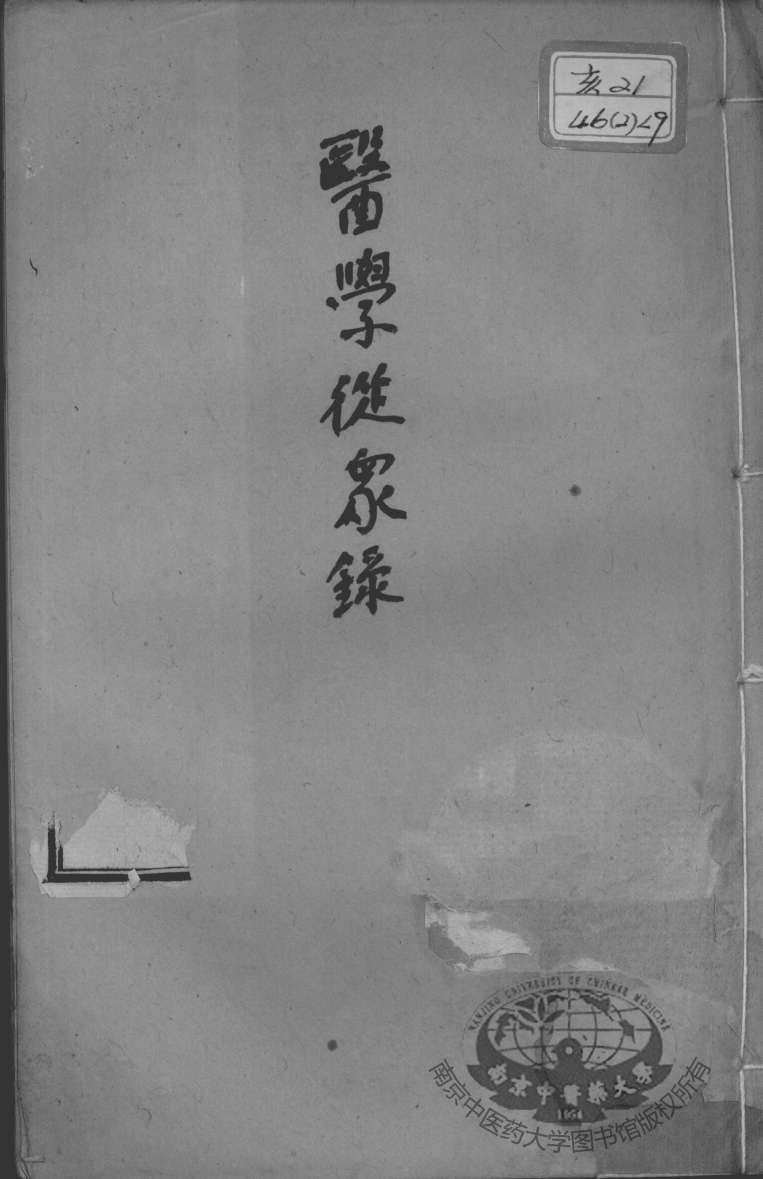 亥21
46(2)29
醫學從衆錄
NANJING UNIVERSITY OF CHINESE MEDICINE
南京中醫藥大學
1954
南京中医药大学图书馆版权所有